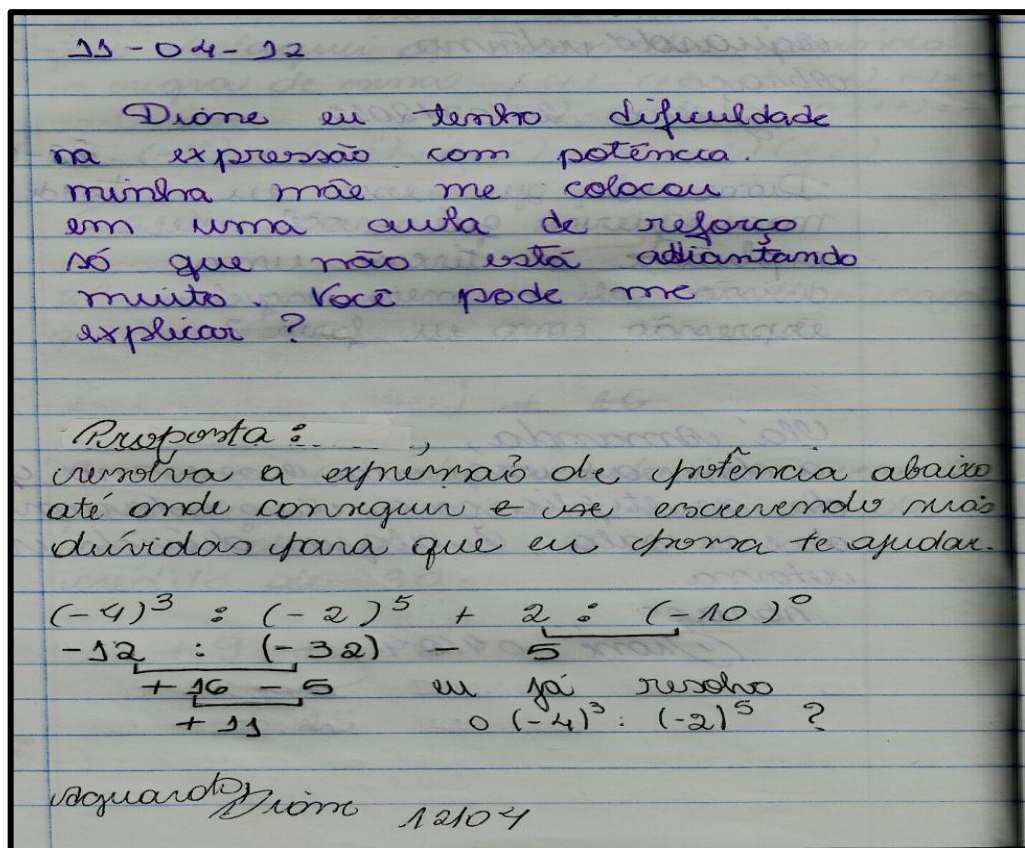 11-04-12
Dione eu tenho dificuldade
na expressão com potência.
minha mãe me colocou
em uma aula de reforço
só que não está adiantando
muito. Você pode me
explicar ?
Proposta : ,
resolva a expressão de potência abaixo
até onde conseguir e vse escrevendo suas
dúvidas para que eu possa te ajudar.
(-4)³ : (-2)⁵ + 2 : (-10)⁰
-12 : (-32) - 5
+16 - 5 eu já resolvo
+11 o (-4)³ : (-2)⁵ ?
aguardo,
Dione 12/04